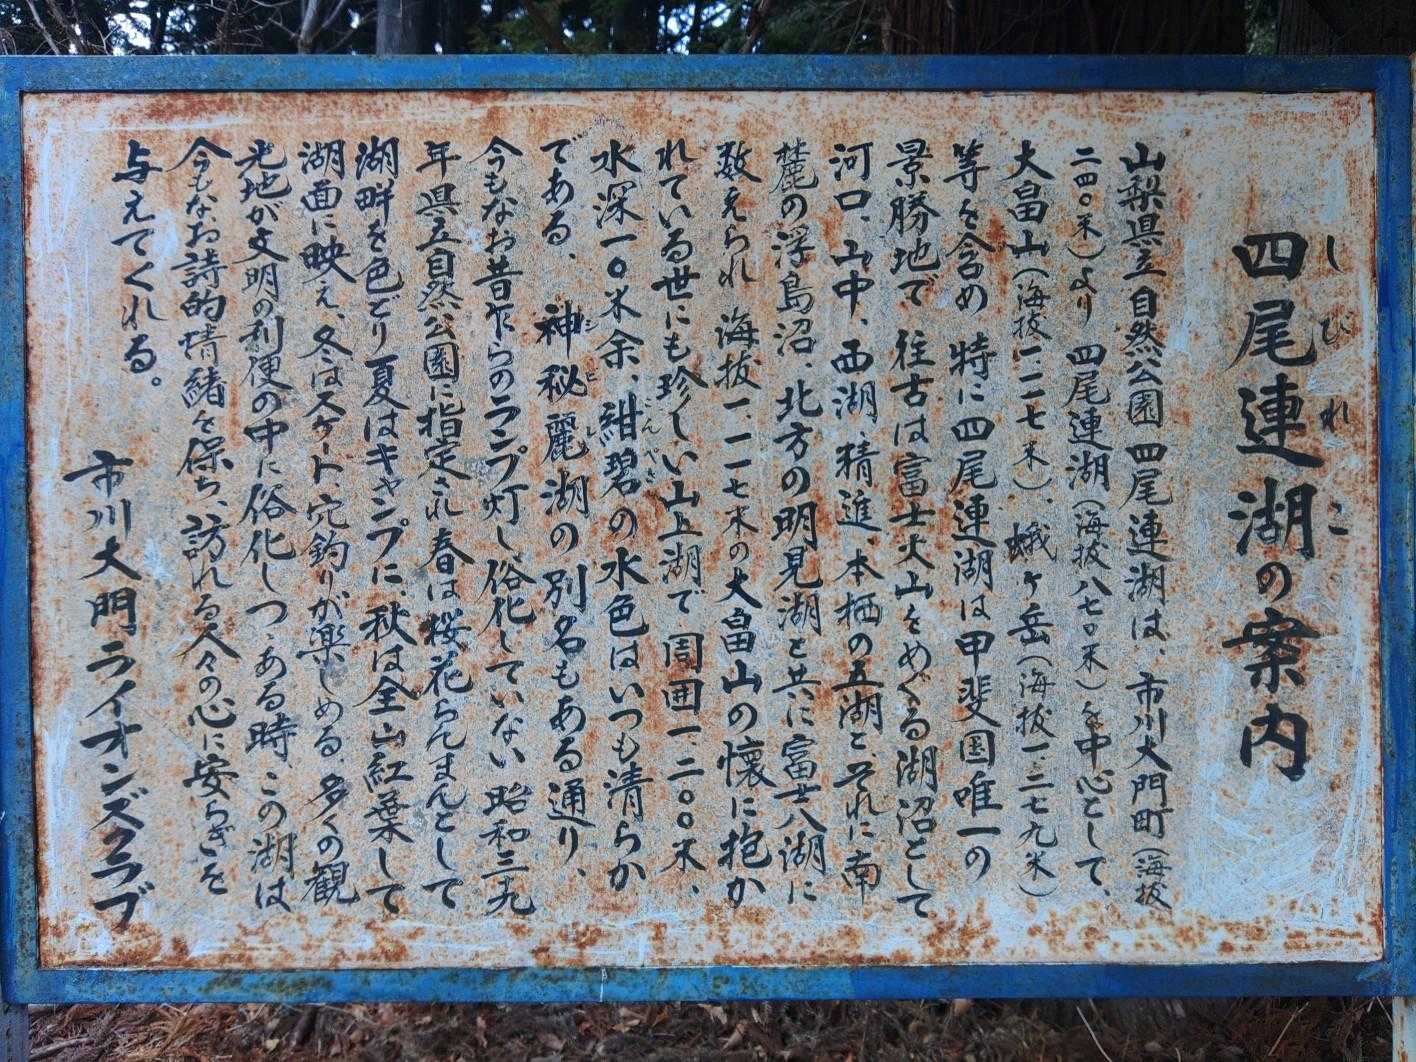 四尾連湖の案内
しびれこ
山梨県立自然公園四尾連湖は、市川大門町(海抜
二四〇米)より四尾連湖(海抜八七〇米)を中心として、
大畠山(海抜一一一七米)、蛾ヶ岳(海抜一、二七九米)
等を含め 特に四尾連湖は甲斐国唯一の
景勝地で 往古は富士火山をめぐる湖沼として
河口、山中、西湖、精進、本栖の五湖と、それに南
麓の浮島沼、北方の明見湖と共に富士八湖に
数えられ 海抜一、一一七米の大畠山の懐に抱か
れている世にも珍しい山上湖で 周囲一、二〇〇米、
水深一〇米余、紺碧の水色はいつも清らか
こんぺき
である、 神秘麗湖の別名もある通り、
シビレ
今もなお昔乍らのランプ灯し俗化していない 昭和三九
年県立自然公園に指定され 春は桜花らんまんとして
湖畔を色どり 夏はキャンプに、秋は全山紅葉して
湖面に映え、冬はスケート穴釣りが楽しめる、多くの観
光地が文明の利便の中に俗化しつゝある時 この湖は
今もなお詩的情緒を保ち、訪れる人々の心に安らぎを
与えてくれる。
市川大門ライオンズクラブ